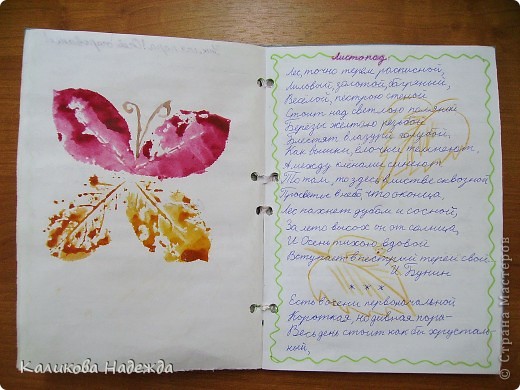 Листопад
Лес, точно терем расписной,
Лиловый, золотой, багряный,
Веселой, пестрою стеной
Стоит над светлою поляной.
Березы желтою резьбой
Блестят в лазури голубой,
Как вышки, елочки темнеют,
А между кленами синеют
То там, то здесь в листве сквозной
Просветы в небо, что оконца.
Лес пахнет дубом и сосной,
За лето высох он от солнца,
И Осень тихою вдовой
Вступает в пестрый терем свой.
И. Бунин
* * *
Есть в осени первоначальной
Короткая, но дивная пора-
Весь день стоит как бы хрусталь-
ный,
Каликова Надежда
© Страна Мастеров